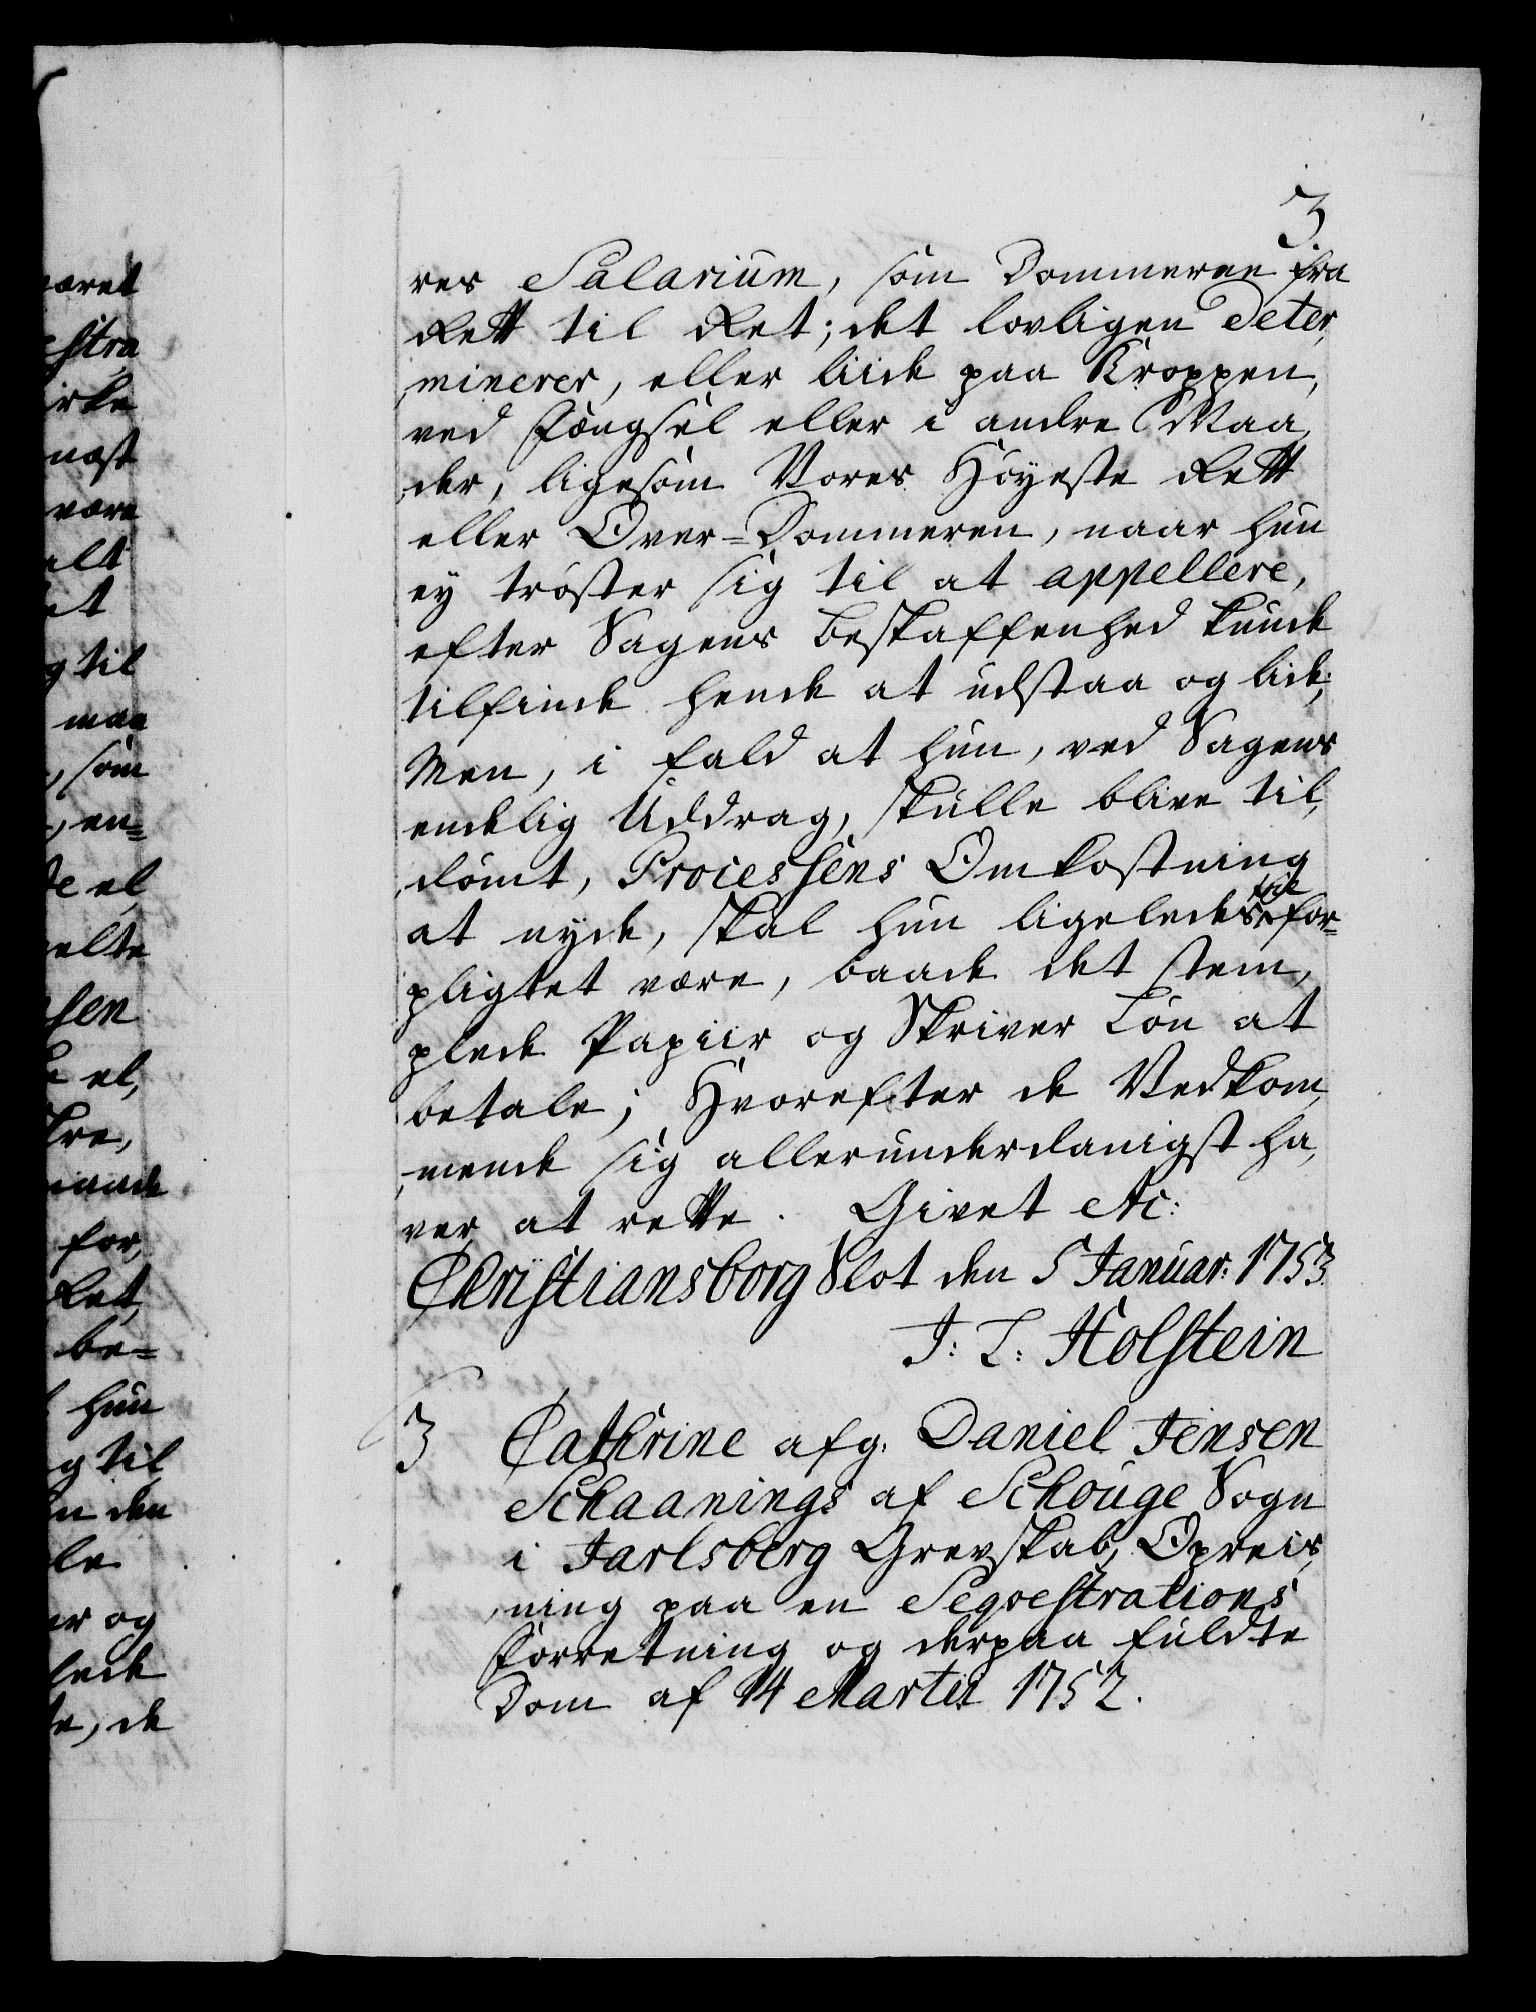 3.
res Salarium, som Dommerne fra
Rett til Ret; det lovligen deter,
minerer, eller liide paa Kroppen,
ved Fængsel eller i andre Maa,
der, ligesom Vores Høyeste Rett
eller Over-Dommeren, naar hun
ey trøster sig til at appellere,
efter Sagens beskaffenhed kunde
tilfinde hende at udstaa og lide;
Men, i fald at hun, ved Sagens
endelig Uddrag, skulle blive til,
dømt, Processens Omkostning
at nyde, skal hun ligeledes for-
pligtet være, baade det stem,
plede Papiir og Skriver Løn at
betale; Hvorefter de Vedkom,
mende sig allerunderdanigst ha,
ver at rette. Givet etc:
Christiansborg Slot den 5 Januar: 1753.
J: L: Holstein
3 Cathrine afg. Daniel Jensen
Schaanings af Schouge Sogn
i Jarlsberg Grevskab, Opreis,
ning paa en Seqvestrations
Forretning og derpaa fuldte
Dom af 14 Martii 1752.
været
estra
irke
næst
være
alt
et
g til
maa
, som
, en=
de el,
elte
sen
el,
kre,
maade
for,
Ret,
be=
hun
g til
n den
le
er og
lede
te, de